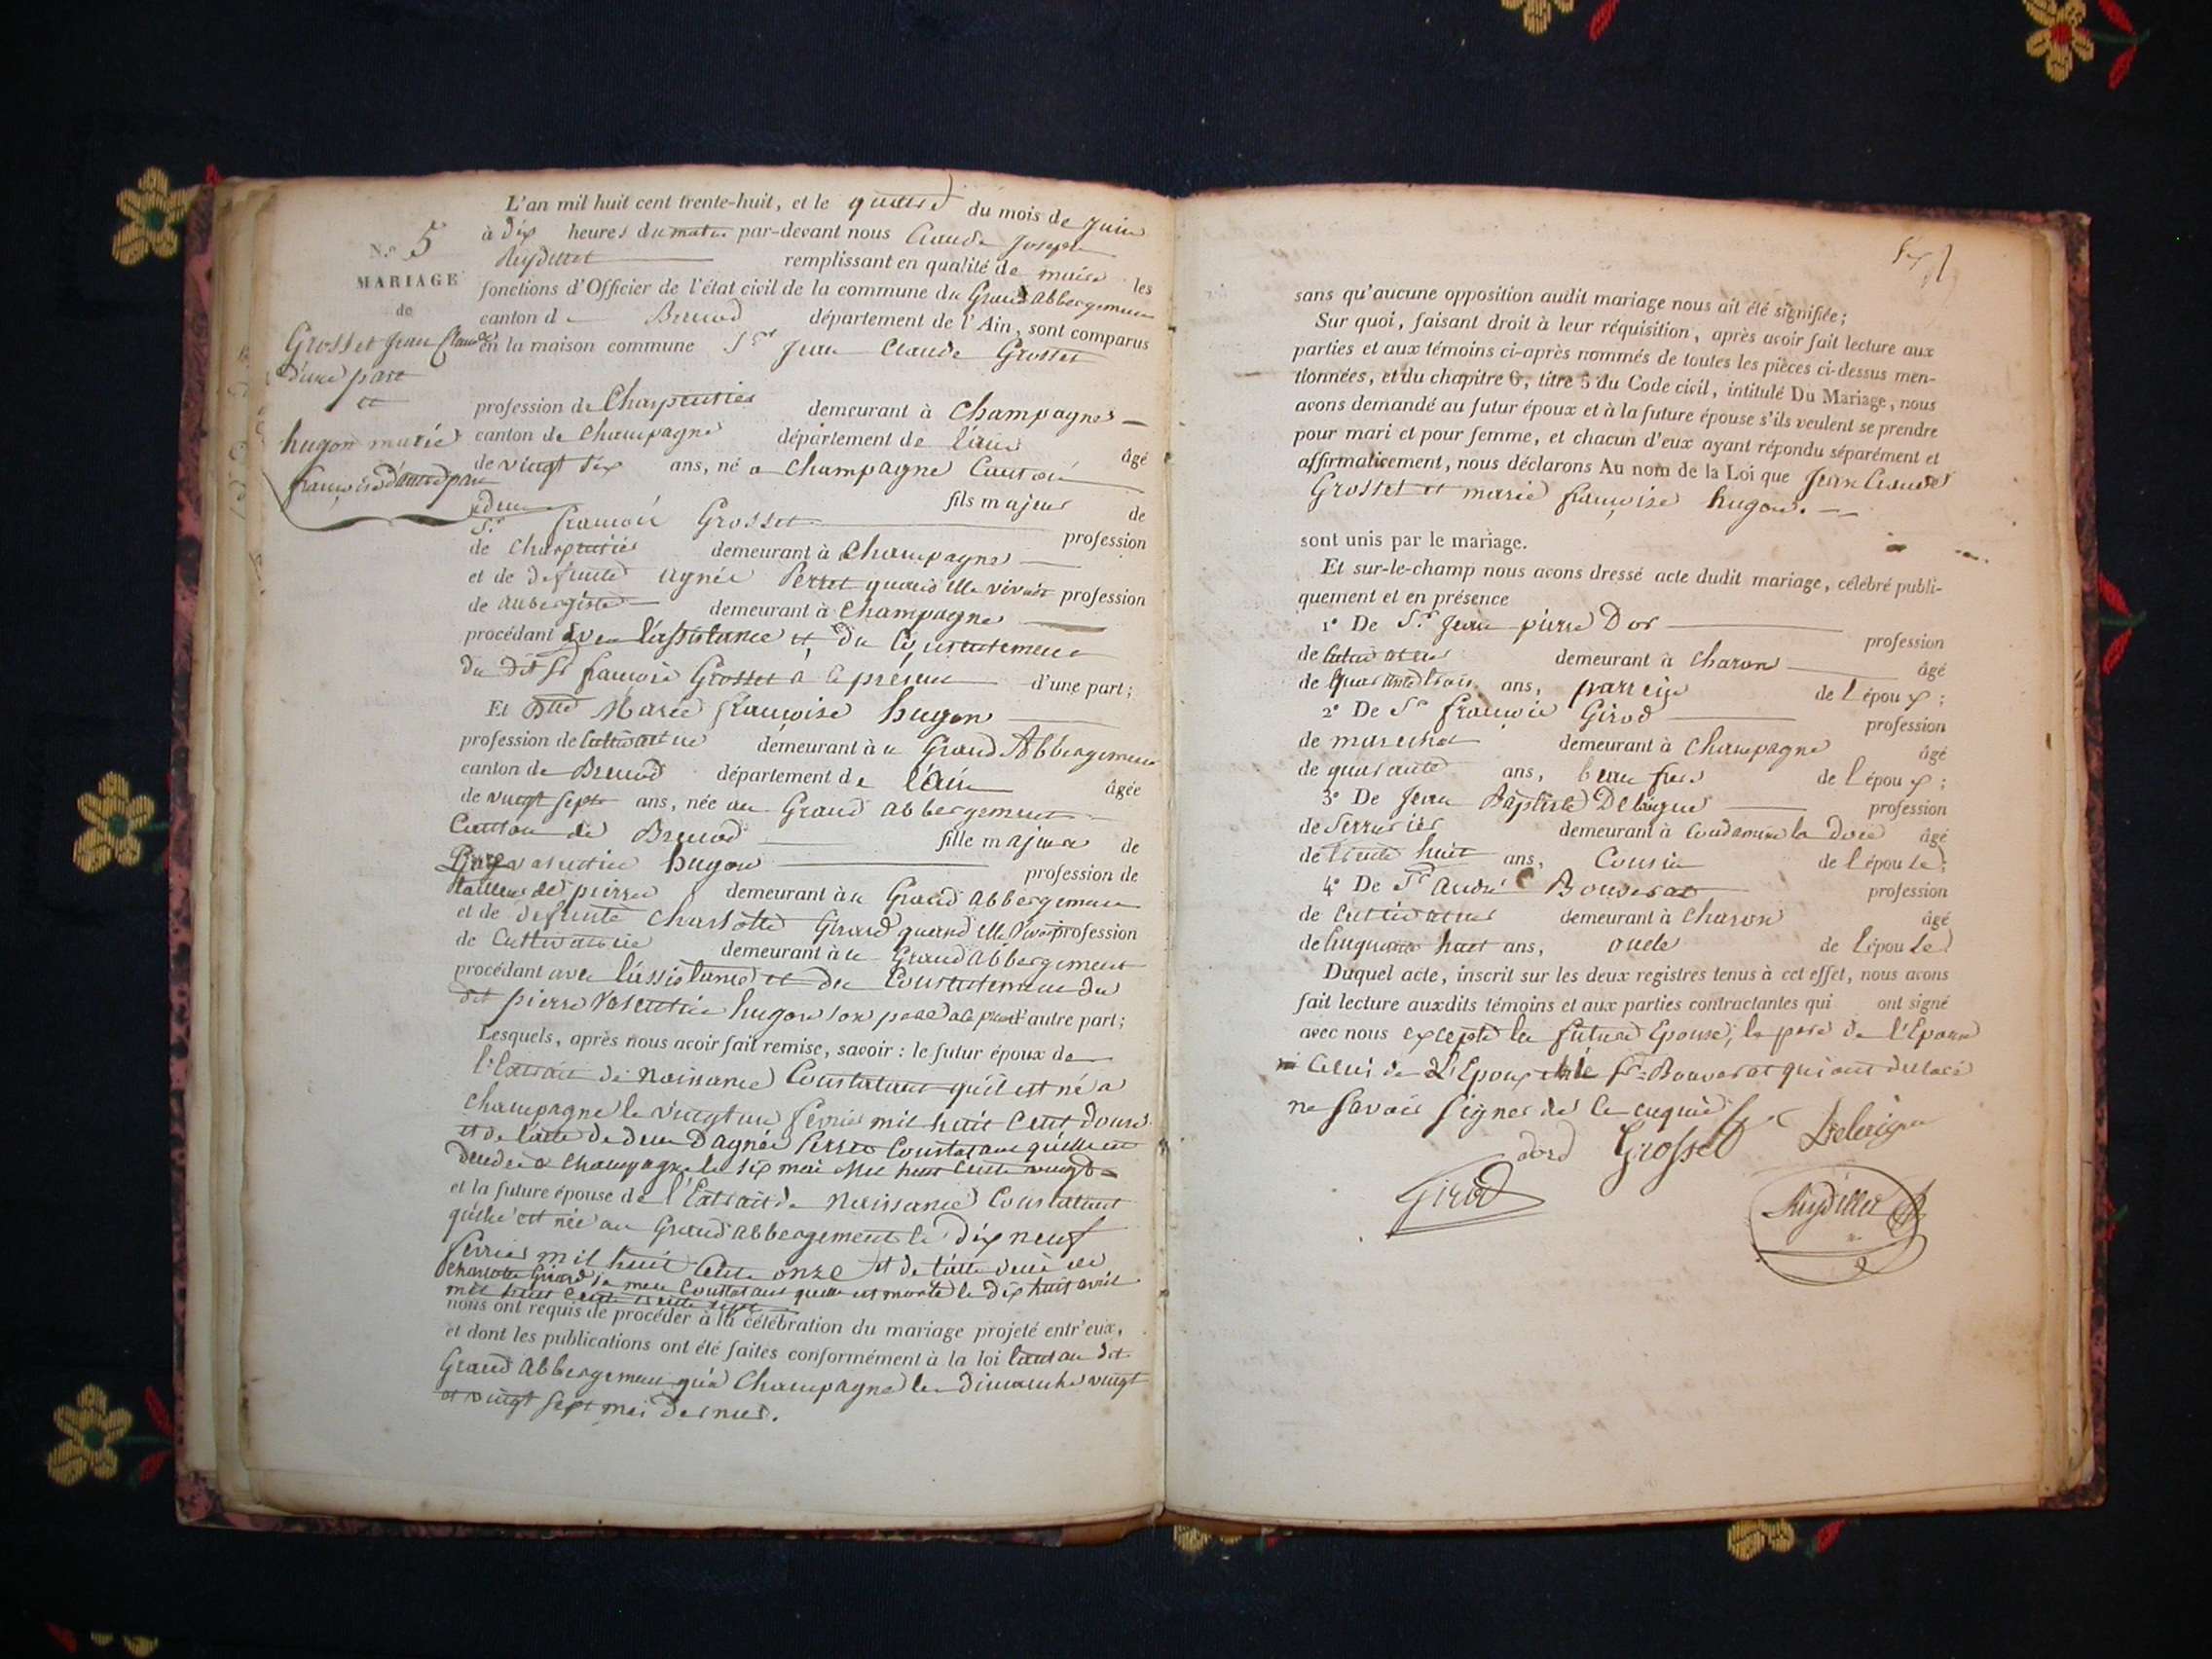 N.º 5
MARIAGE
de
Grosset Jean Claude
d'une part
et
hugon marie
françoise d'autre part
L'an mil huit cent trente-huit, et le quatre du mois de juin
à dix heures du matin par-devant nous Claude Joseph
remplissant en qualité de maire les
fonctions d'Officier de l'état civil de la commune du Grand Abbergement
canton de Brenod département de l'Ain, sont comparus
en la maison commune Sr Jean Claude Grosset
profession de Charpentier demeurant à Champagne
canton de Champagne département de l'ain âgé
de vingt six ans, né a Champagne Canton
fils majeur de
Sr francois Grosset profession
de charpentier demeurant à Champagne
et de defunte agnée Perret quand elle vivait profession
de aubergiste demeurant à Champagne
procédant avec l'assistance et du Consentement
du dit Sr francois Grosset a ce présent d'une part;
Et Dlle Marie françoise hugon
profession de Cultivatrice demeurant à u Grand Abbergement
canton de Brenod département de l'Ain âgée
de vingt sept ans, née au Grand abbergement
Canton de Brenod fille majeure de
Pierre valentin hugon profession de
tailleur de pierre demeurant à u Grand abbergement
et de defunte Charlotte Girard quand elle vivait profession
de Cultivatrice demeurant à u Grand abbergement
procédant avec l'assistance et du Consentement du
dit pierre valentin hugon son père a ce présent d'autre part;
Lesquels, après nous avoir fait remise, savoir : le futur époux de
l'Extrait de Naissance Constatant qu'il est né a
Champagne le vingt un fevrier mil huit Cent douze
et de l'acte de deces D'agnée Perret Constatant qu'elle est
decedee a Champagne le six mai Mil huit Cent vingt
et la future épouse de l'Extrait de Naissance Constatant
qu'elle est née au Grand abbergement le dix neuf
fevrier mil huit Cent onze et de l'acte deces de
Charlotte Girard sa mere Constatant quelle est morte le dix huit avril
mil huit Cent trente sept
nous ont requis de procéder à la célébration du mariage projeté entr'eux,
et dont les publications ont été faites conformément à la loi tant au dit
Grand abbergement qu'a Champagne les dimanches vingt
et vingt sept mai dernier.
sans qu'aucune opposition audit mariage nous ait été signifiée;
Sur quoi, faisant droit à leur réquisition, après avoir fait lecture aux
parties et aux témoins ci-après nommés de toutes les pièces ci-dessus men-
tionnées, et du chapitre 6, titre 5 du Code civil, intitulé Du Mariage, nous
avons demandé au futur époux et à la future épouse s'ils veulent se prendre
pour mari et pour femme, et chacun d'eux ayant répondu séparément et
affirmativement, nous déclarons Au nom de la Loi que Jean Claude
Grosset et marie françoise hugon.
sont unis par le mariage.
Et sur-le-champ nous avons dressé acte dudit mariage, célébré publi-
quement et en présence
1º De Sr Jean pierre Dor profession
de Cultivateur demeurant à Charon âgé
de quarante trois ans, parrein de l'époux;
2º De Sr françois Girod profession
de marechal demeurant à Champagne âgé
de quarante ans, beau frere de l'époux;
3º De Jean Baptiste Delaigue profession
de Serrurier demeurant à Condamine la Doye âgé
de trente huit ans, Cousin de l'épouse;
4º De Sr André Bouverat profession
de Cultivateur demeurant à Charon âgé
de Cinquante huit ans, oncle de l'épouse
Duquel acte, inscrit sur les deux registres tenus à cet effet, nous avons
fait lecture auxdits témoins et aux parties contractantes qui ont signé
avec nous excepté la future Epouse, le père de l'Epouse
Celui de L'Epoux et le Sr Bouverat qui ont declaré
ne savoir signer de ce enquis
dord Grosset Delaigue
Girod